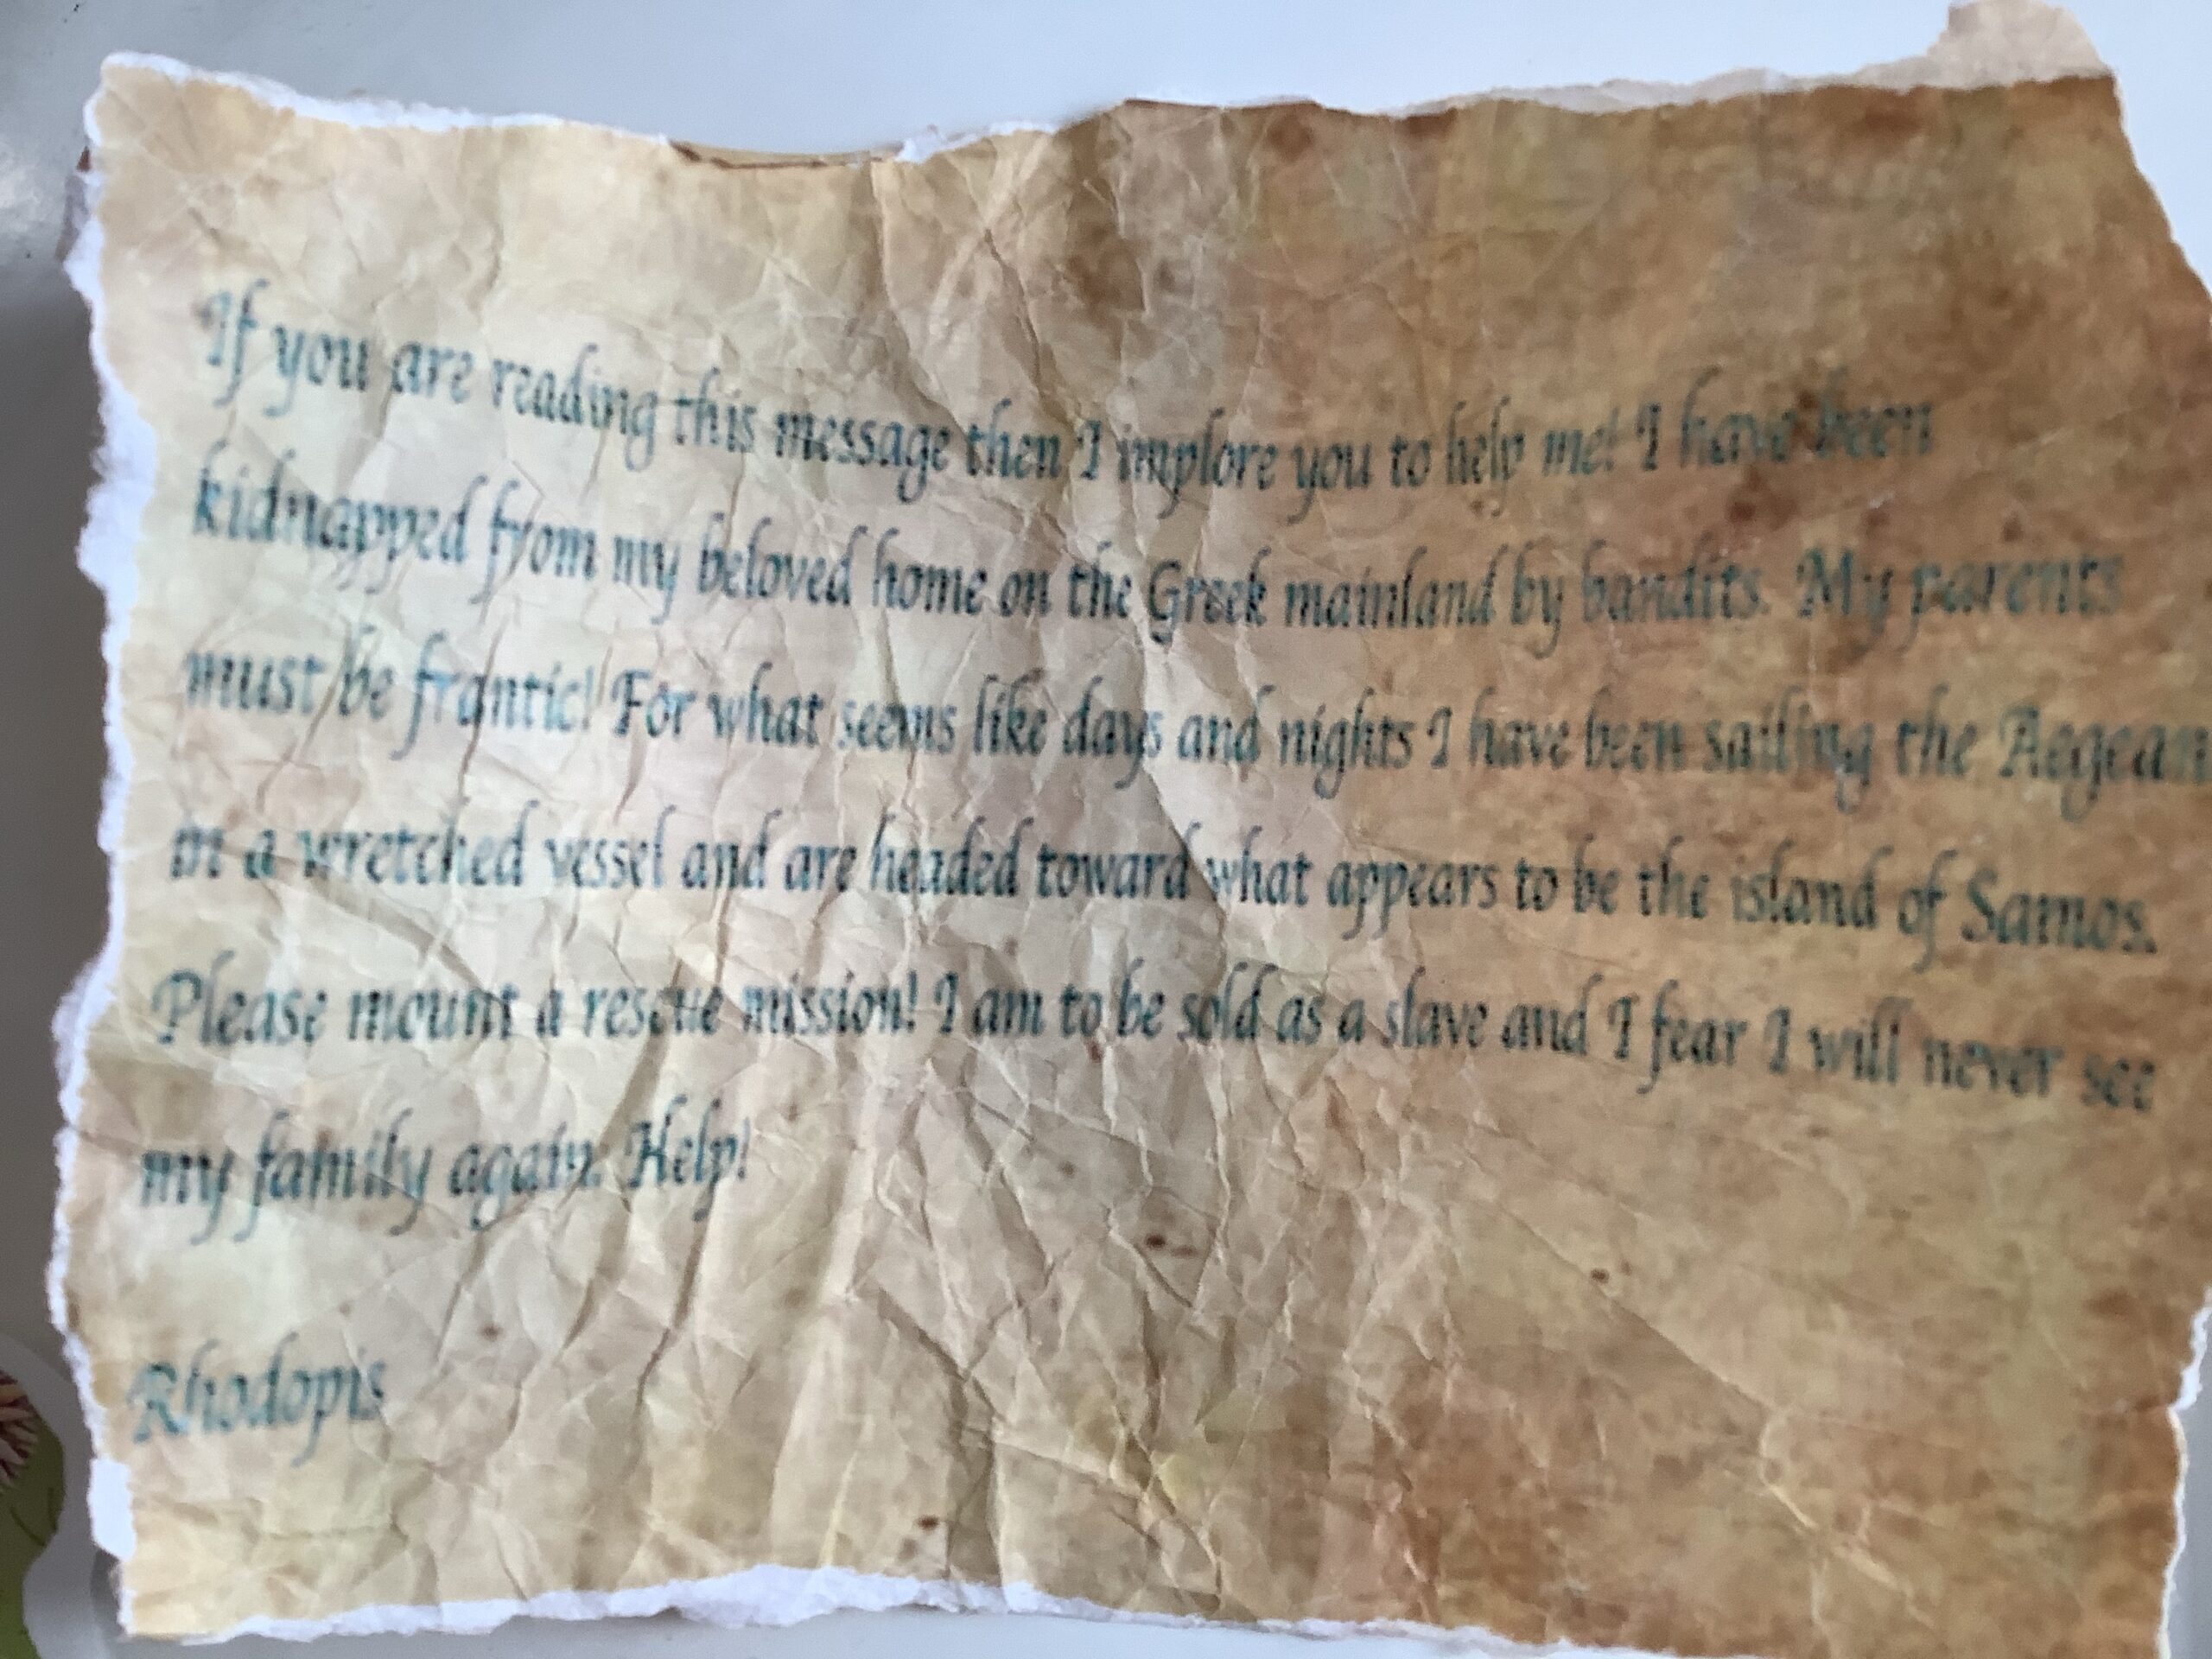 If you are reading this message then I implore you to help me! I have been
kidnapped from my beloved home on the Greek mainland by bandits. My parents
must be frantic! For what seems like days and nights I have been sailing the Aegean
in a wretched vessel and are headed toward what appears to be the island of Samos.
Please mount a rescue mission! I am to be sold as a slave and I fear I will never see
my family again. Help!
Rhodopis